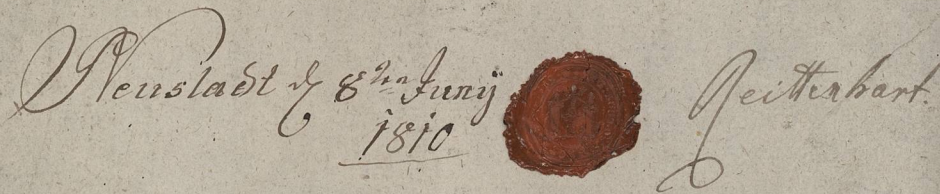 Neustadt d 8ten Junÿ
1810
Reittenhart.